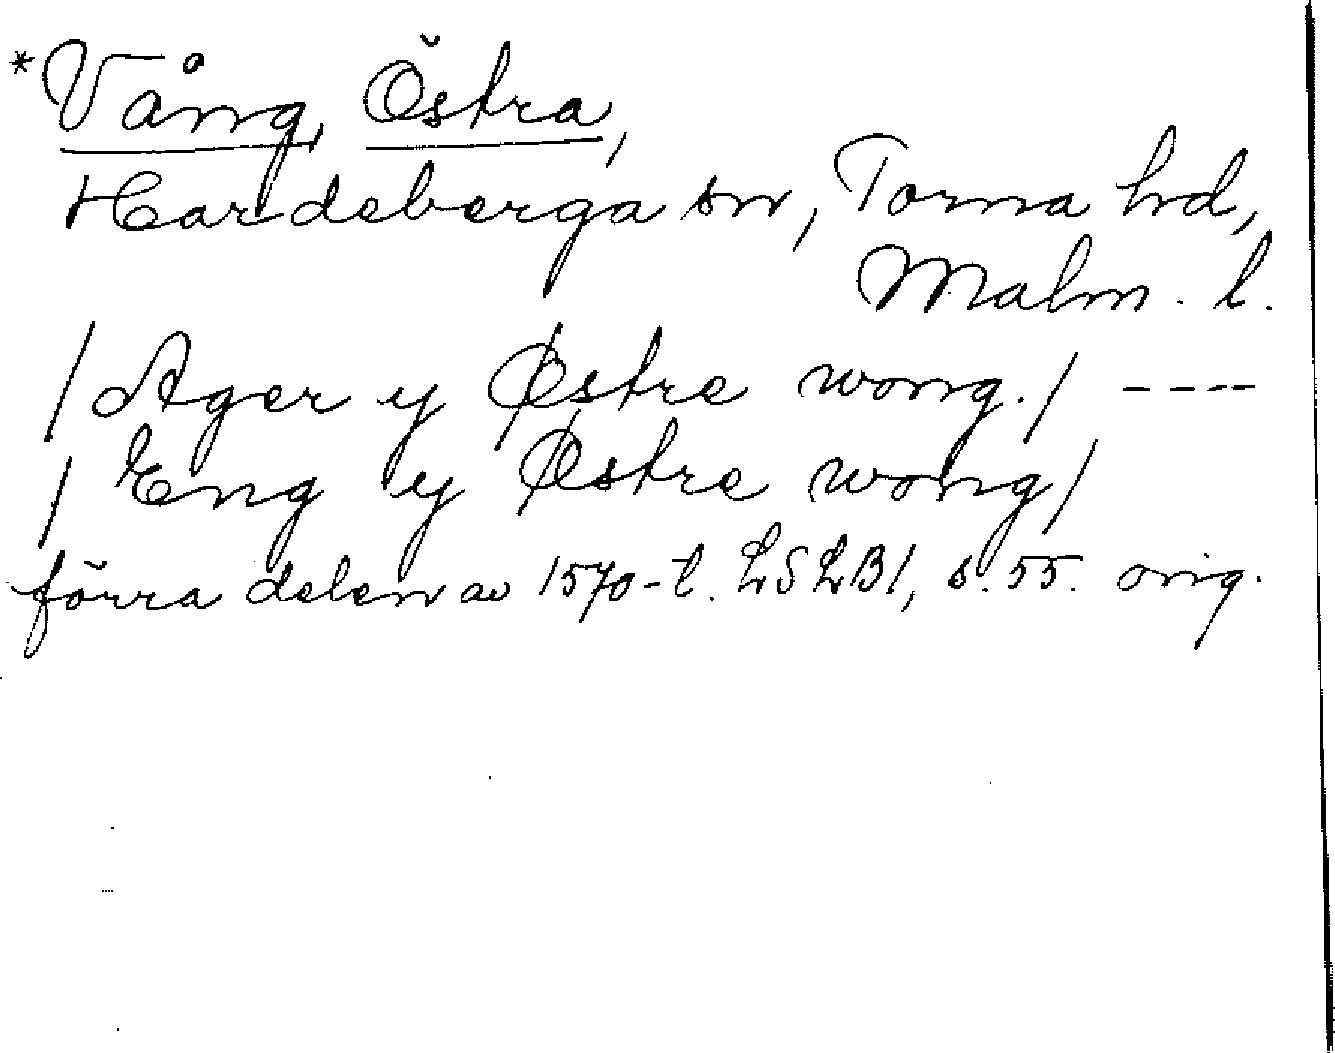 *Vång, Östra,
Hardeberga sn, Torna hd,
Malm. l.
/Ager y Østre wong./ ----
/Eng y Østre wong/
förra delen av 1570-t. LSLB1, s. 55. orig.